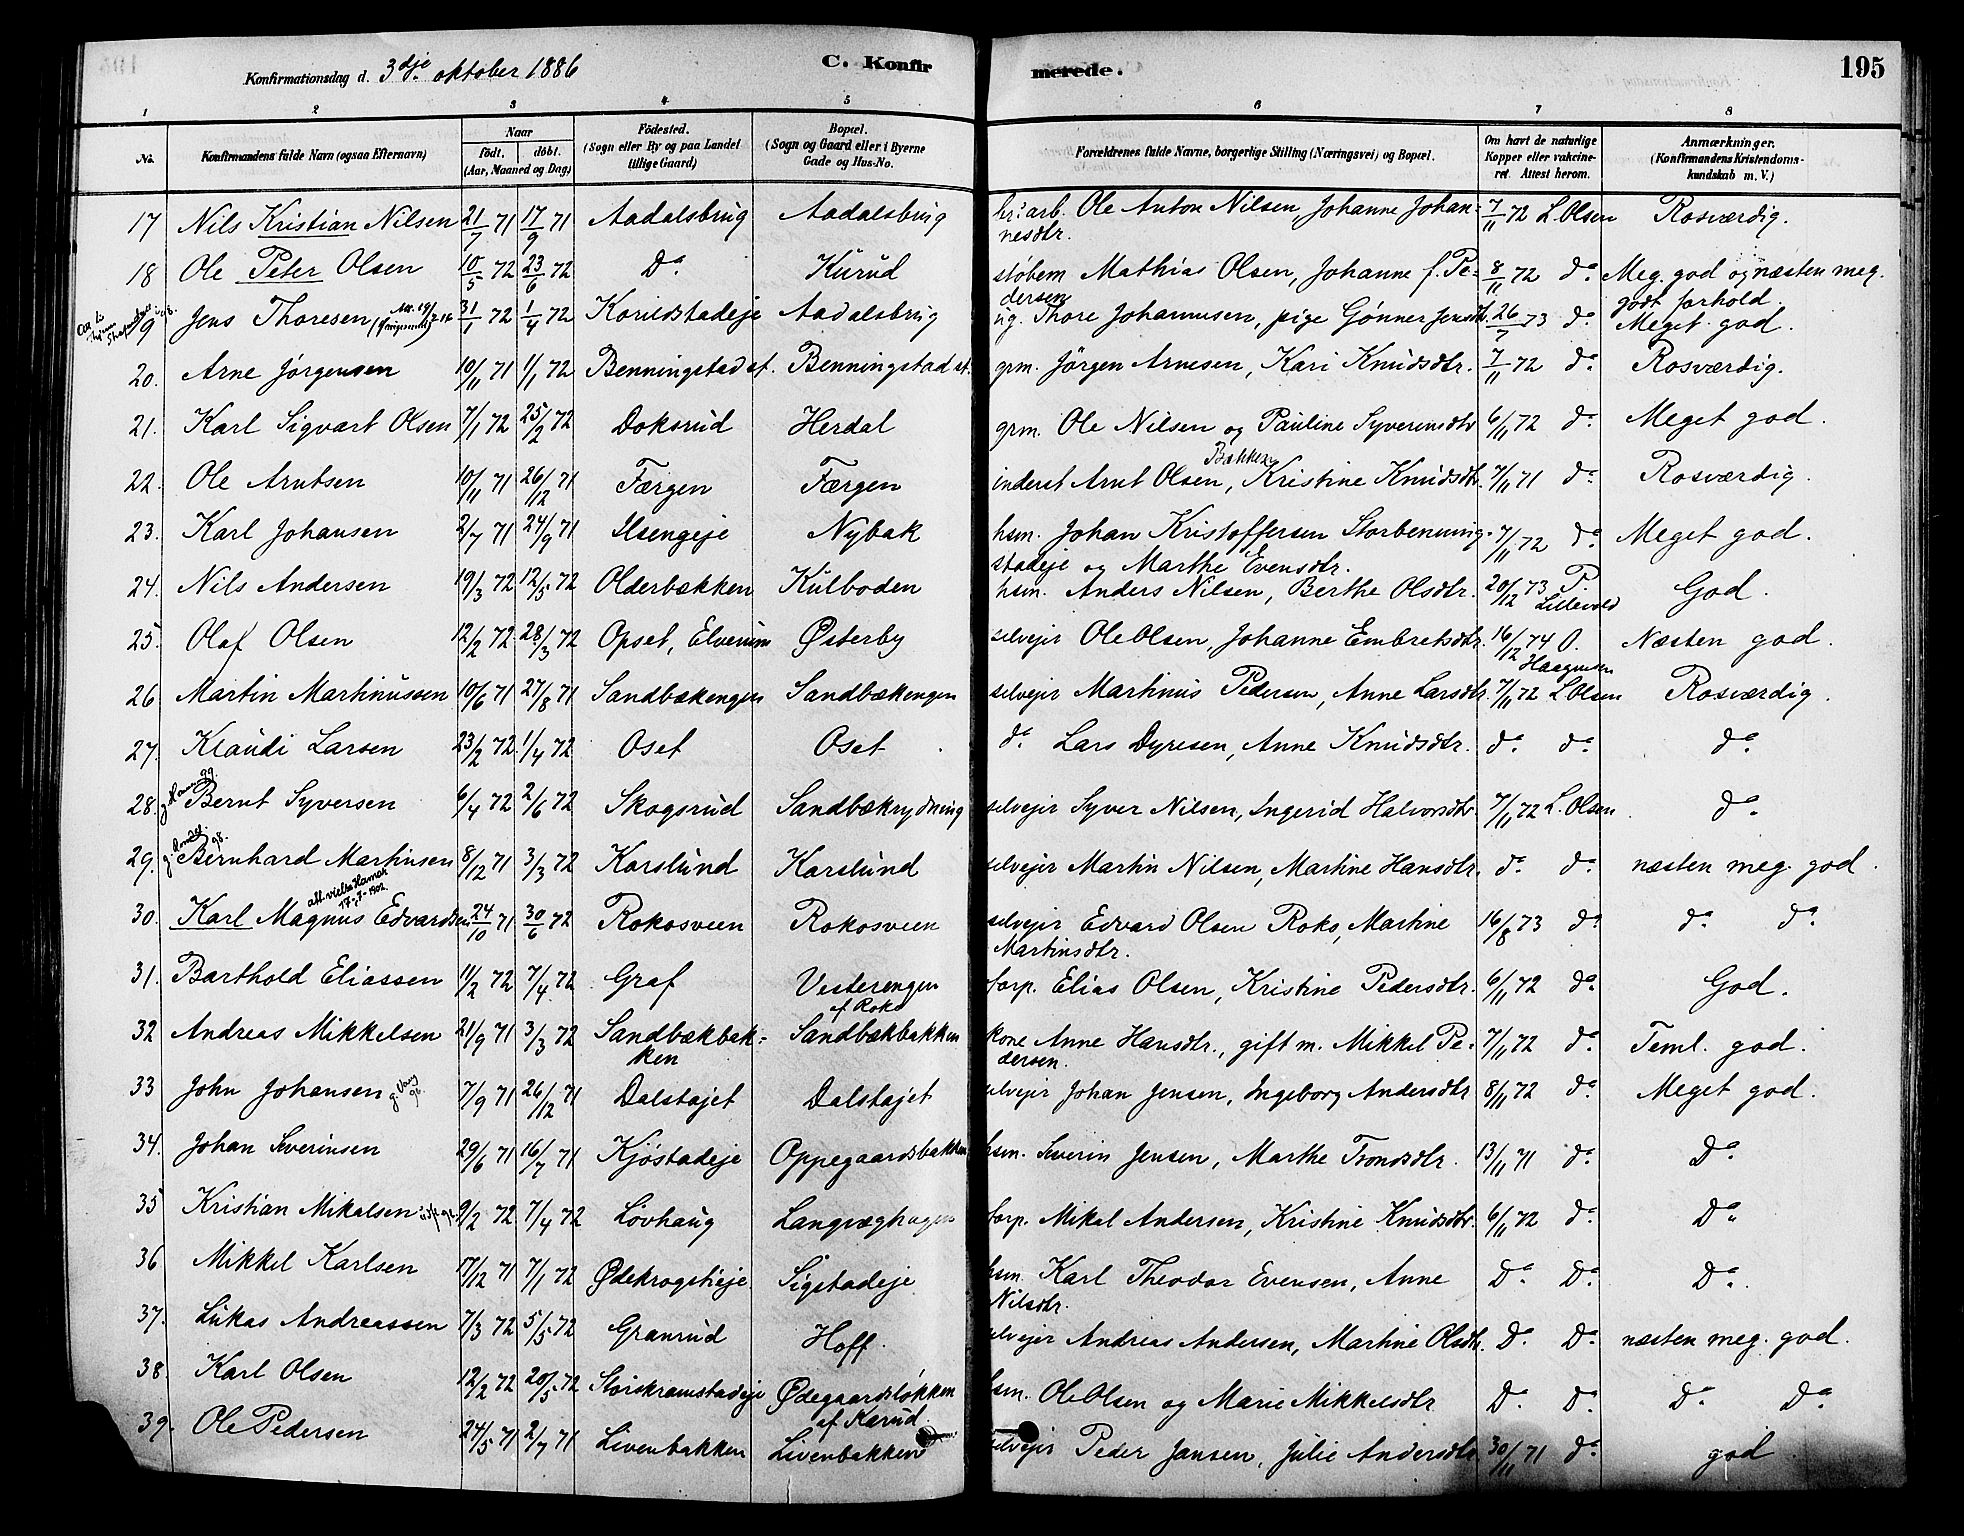 Konfirmationsdag d. 3dje oktober 1886 C. Konfirmerede. 195
1 2 3 4 5 6 7 8
No. Konfirmandens fulde Navn (ogsaa Efternavn) Naar födt. döbt. (Aar, Maaned og Dag) Födested. (Sogn eller By og paa Landet tillige Gaard) Bopæl. (Sogn og Gaard eller i Byerne Gade og Hus-No. Forældrenes fulde Navne, borgerlige Stilling (Næringsvei) og Bopæl. Om havt de naturlige Kopper eller vakcineret. Attest herom. Anmærkninger. (Konfirmandens Kristendomskundskab m. V.)
17 Nils Kristian Nilsen 21/7 71 17/9 71 Aadalsbrug Aadalsbrug br. arb. Ole Anton Nilsen, Johanne Johan= 7/11 72 L. Olsen Rosværdig.
nesdtr.
18 Ole Peter Olsen 10/5 72 23/6 72 Do. Kurud støbem Mathias Olsen, Johanne f. Pe= 8/11 72 do. Meg. god og næsten meg.
dersen godt forhold.
19 Jens Thoresen 31/1 72 1/4 72 Korildstadeje Aadalsbrug ug. Thore Johannesen, pige Gønner Jensdtr. 26/7 73 do. Meget god.
20. Arne Jørgensen 10/11 71 1/1 72 Benningstad st. Benningstad st. grm. Jörgen Arnesen, Kari Knudsdtr. 7/11 72 do. Rosværdig.
21. Karl Sigvart Olsen 7/1 72 25/2 72 Doksrud Herdal grm. Ole Nilsen og Pauline Syverinsdtr 6/11 72 do. Meget god.
Bakken
22. Ole Arntsen 10/11 71 26/12 71 Færgen Færgen inderst Arnt Olsen, Kristine Knudsdtr. 7/11 71 do. Rosværdig.
23. Karl Johansen 2/7 71 24/9 71 Ilsengeje Nybak hsm. Johan Kristoffersen Storbenning- 7/11 72 do. Meget god.
stadeje og Marthe Evensdtr.
24. Nils Andersen 19/3 72 12/5 72 Olderbækken Kulboden hsm. Anders Nilsen, Berthe Olsdtr. 20/12 73 P. Lillevold God.
25. Olaf Olsen 12/2 72 28/3 72 Opset, Elverum Østerby selvejer Ole Olsen, Johanne Embretsdtr. 16/12 74 O. Haagensen Næsten god.
26 Martin Martinussen 10/6 71 27/8 71 Sandbækengen Sandbækengen selvejer Martinus Pedersen, Anne Larsdtr. 7/11 72 L Olsen Rosværdig.
27. Klaudi Larsen 23/2 72 1/4 72 Oset Oset do. Lars Dyresen, Anne Knudsdtr. do. do. do.
28. Bernt Syversen 6/4 72 2/6 72 Skogsrud Sandbækrydning selvejer Syver Nilsen, Ingerid Halvorsdtr 7/11 72 L. Olsen do.
29. Bernhard Martinsen 8/12 71 3/3 72 Karslund Karslund selvejer Martin Nilsen, Martine Hansdtr. do. do. næsten meg. god.
att. vielse Hamar
17-7-1902.
30. Karl Magnus Edvardsen 24/10 71 30/6 72 Rokosveen Rokosveen selvejer Edvard Olsen Roko, Martine 16/8 73 do. do. do.
Martinsdtr.
31. Barthold Eliassen 11/2 72 7/4 72 Graf Vesterengen forp. Elias Olsen, Kristine Pedersdtr. 6/11 72 do. God.
af Roko
32 Andreas Mikkelsen 21/9 71 3/3 72 Sandbækbak= Sandbækbakken kone Anne Hansdtr., gift m. Mikkel Pe= 7/11 72 do. Teml. god.
ken dersen.
33 John Johansen g. Vang 98. 7/9 71 26/12 71 Dalstøjet Dalstøjet selvejer Johan Jensen, Ingeborg Andersdtr 8/11 72 do. Meget god.
34. Johan Severinsen 29/6 71 16/7 71 Kjöstadeje Oppegaardsbakken hsm. Severin Jensen, Marthe Trondsdtr. 13/11 71 do. Do.
35 Kristian Mikalsen 9/2 72 7/4 72 Lövhaug Langvæghagen forp. Mikal Andersen, Kristine Knudsdtr. 6/11 72 do. Do.
36 Mikkel Karlsen 17/12 71 7/1 72 Ødekrogstieje Sigstadeje hsm. Karl Theodor Evensen, Anne Do. Do. Do.
Nilsdtr.
37. Lukas Andreassen 7/3 72 5/5 72 Granrud Hoff. selvejer Andreas Andersen, Martine Olsdtr. Do. Do. næsten meg. god.
38. Karl Olsen 12/2 72 20/5 72 Storskramstadeje Ødegaardsløkken hsm. Ole Olsen og Marie Mikkelsdtr Do. Do. Do. Do.
af Kurud.
39. Ole Pedersen 24/5 71 2/7 71 Livenbakken Livenbakken selvejer Peder Jansen, Julie Andersdtr 30/11 71 do. god